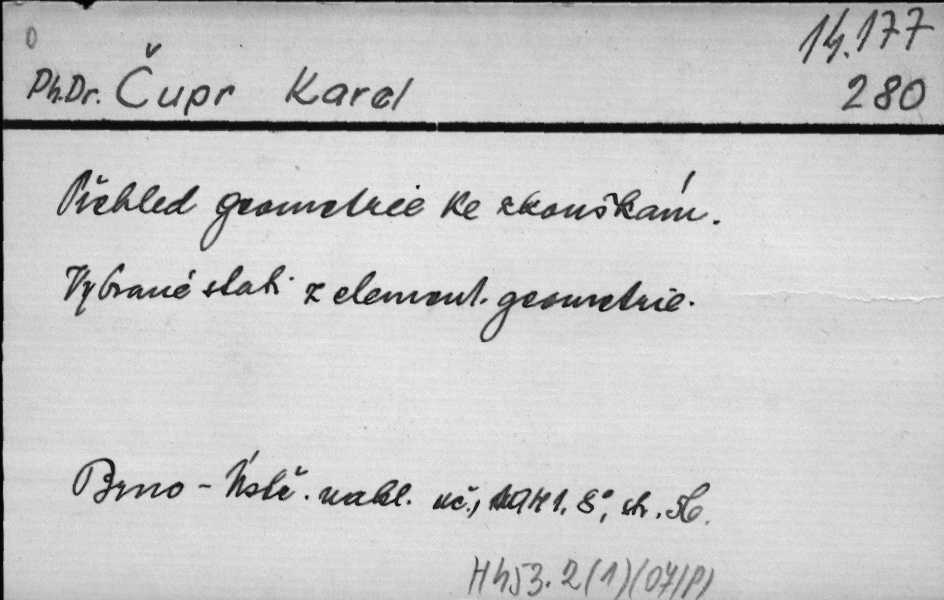 0
14.177
Ph.Dr. Čupr Karel
280
Přehled geometrie ke zkouškám.
Vybrané stati z element. geometrie.
Brno - Ústř. nakl. uč., 1941. 8°, str.
H 453.2(1)(07/P)